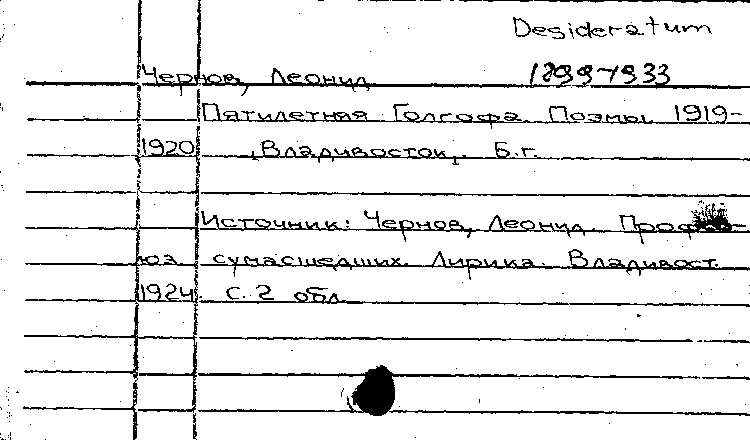 Desideratum
Чернов, Леонид 1899-1933
Пятилетняя Голгофа. Поэмы 1919-
1920 ,Владивосток,. Б.г.
Источник: Чернов, Леонид. Профсо-
юз сумасшедших. Лирика. Владивост.
1924. С. 2 обл.